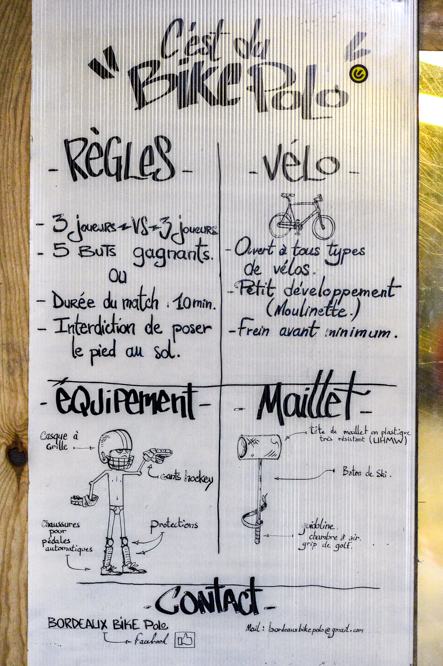 C'est du
"Bike Polo"
- Règles -
- 3 joueurs VS 3 joueurs.
- 5 Buts gagnants.
ou
- Durée du match : 10 min.
- Interdiction de poser
le pied au sol.
- Vélo -
- Ouvert à tous types
de vélos.
- Petit développement
(Moulinette.)
- Frein avant minimum.
- équipement -
Casque à
Grille
Gants hockey
Chaussures
pour
pédales
automatiques
Protections
- Maillet -
tête de maillet en plastique
très résistant (UHMW)
Baton de Ski.
guidoline.
chambre à air.
grip de golf.
- Contact -
BORDEAUX BIKE Polo
Facebook
Mail : bordeauxbikepolo@gmail.com